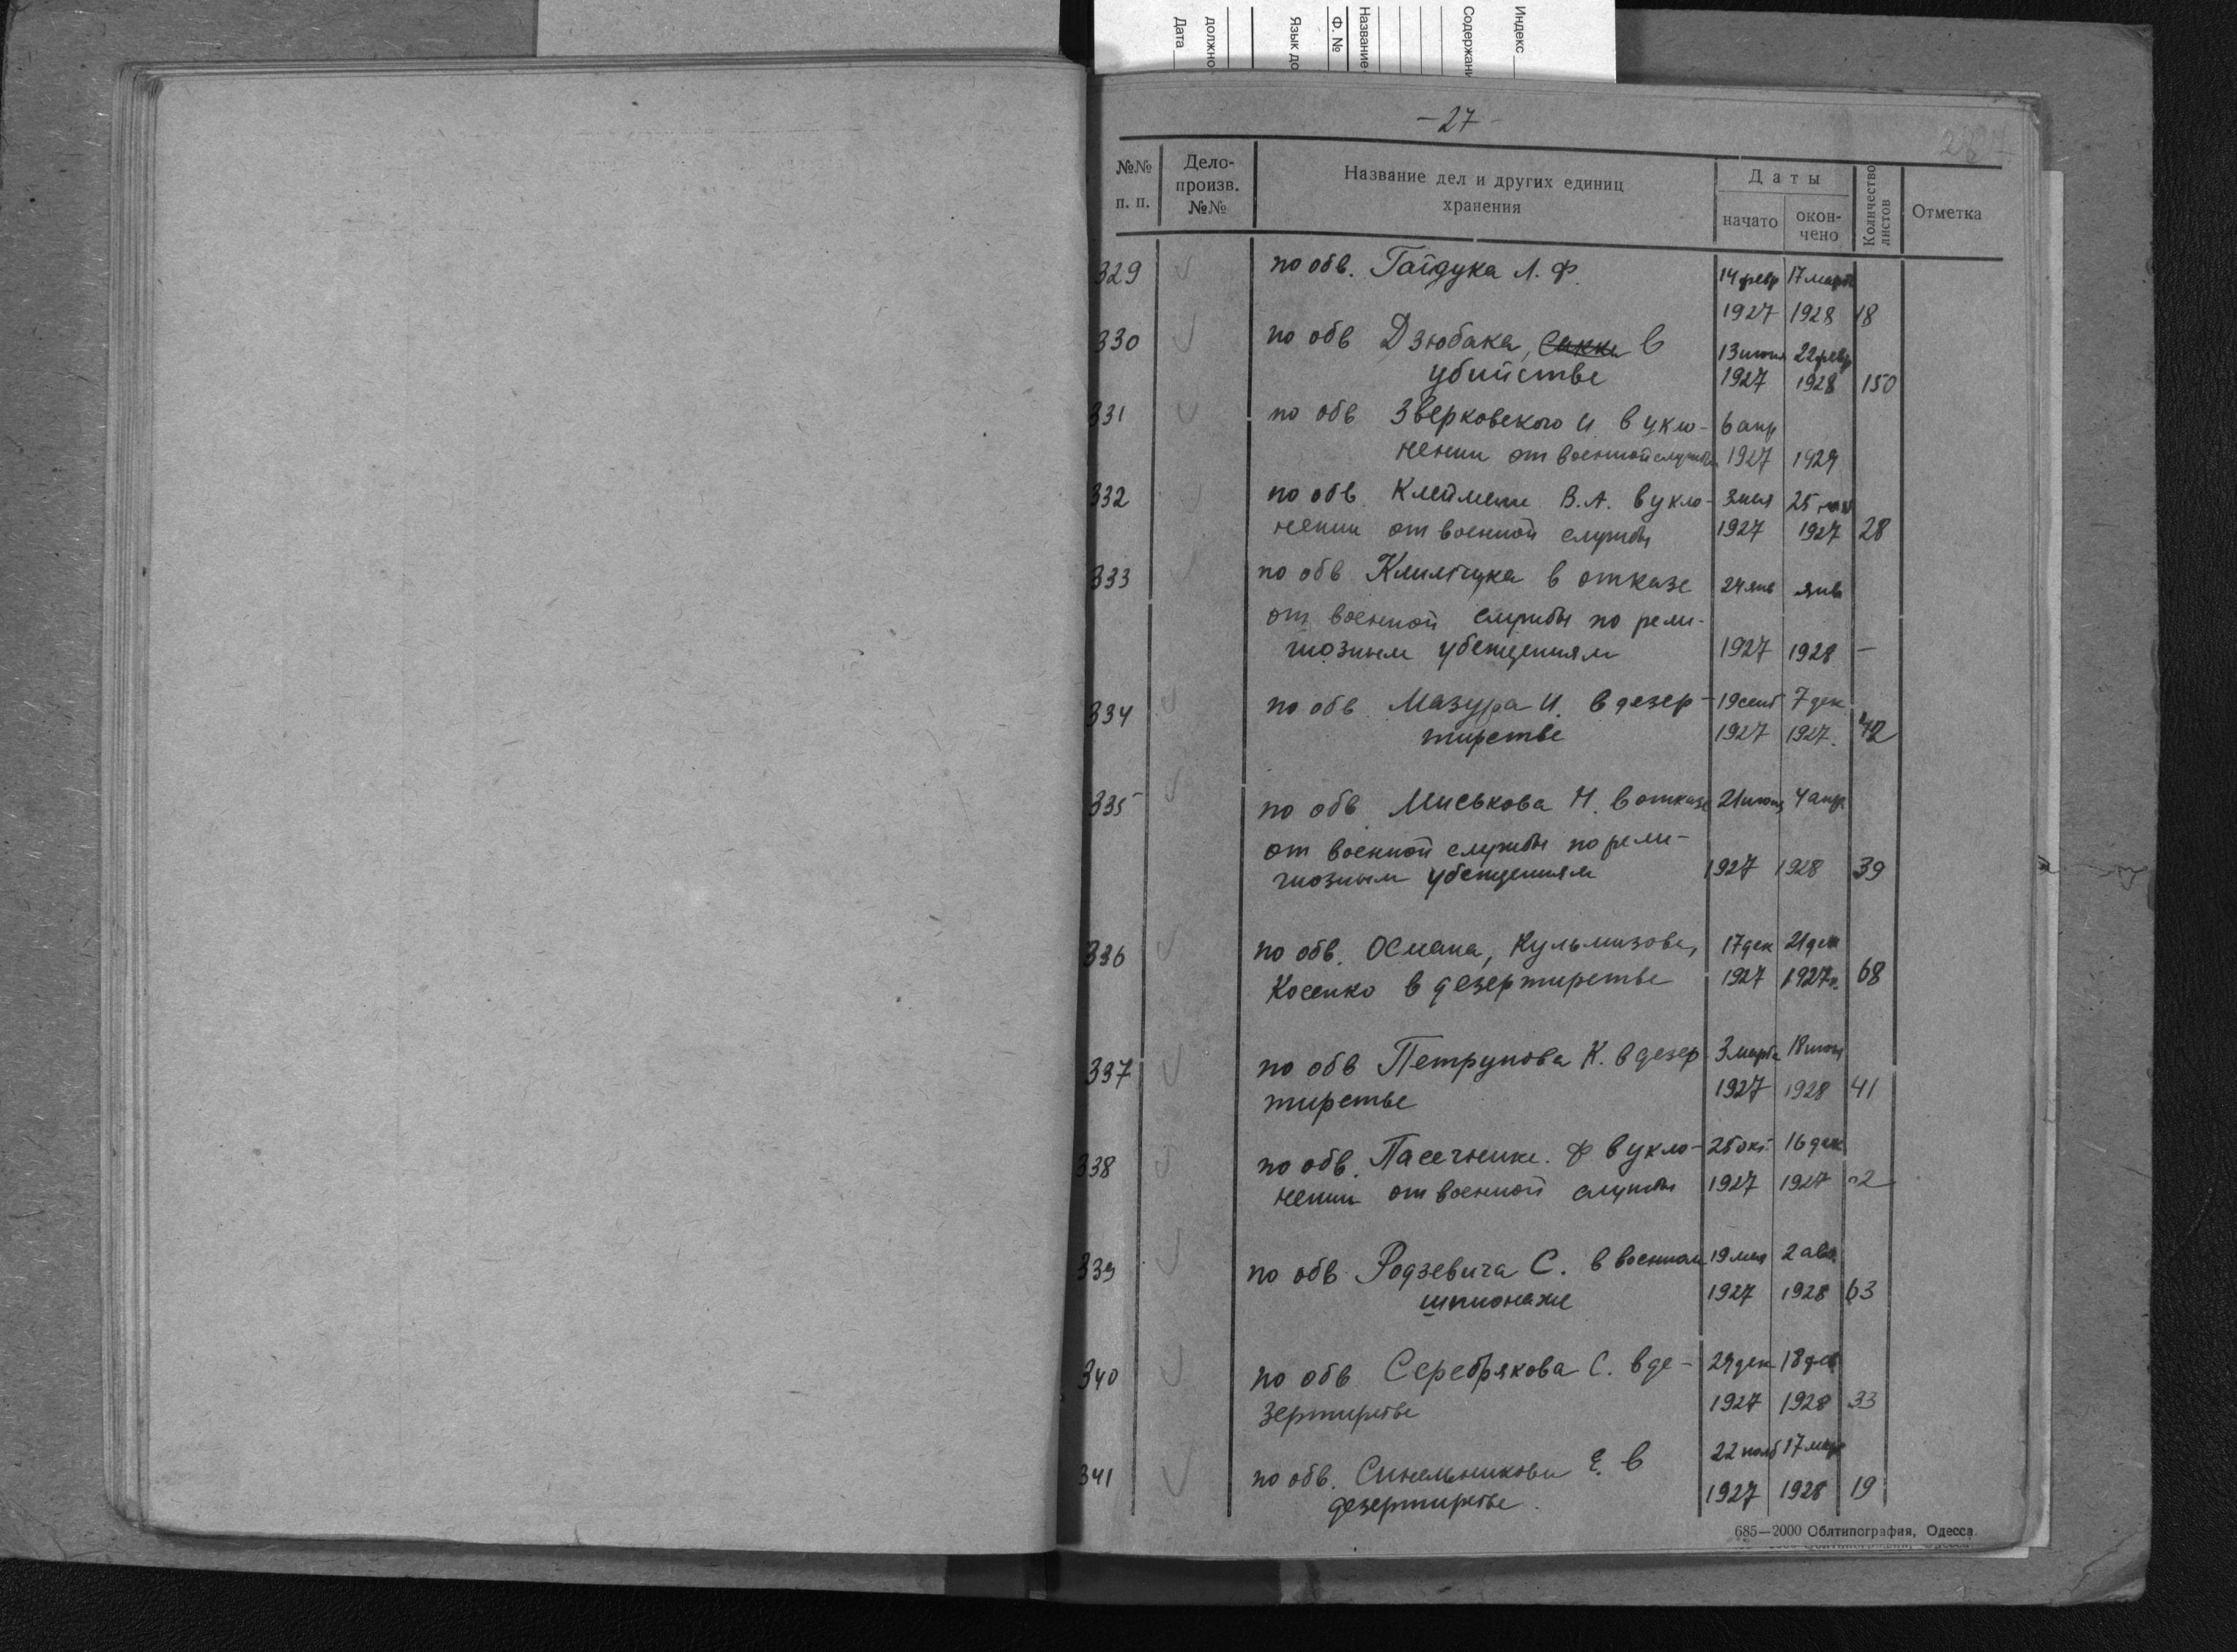 Индекс
Содержани
Название
Ф. №
Язык до
должно
Дата
-27-
№№ п. п.
Дело-произв. №№
Название дел и других единиц хранения
Даты
начато
окон-чено
Количество листов
Отметка
329 по обв. Гайдука Л. Ф. 14 февр 17 марта
1927 1928 18
330 по обв Дзюбака, в 13 июня 22 февр
убийстве 1927 1928 150
331 по обв Зверковского И в укло- 6 апр
нении от военной службы 1927 1929
332 по обв. В. А. в укло- 3 мая 25
нении от военной службы 1927 1927 28
333 по обв Климчука в отказе 24 янв янв
от военной службы по рели-
гиозным убеждениям 1927 1928 —
334 по обв Мазура И. в дезер- 19 сент 7 дек
тирстве 1927 1927. 42
335 по обв. Миськова Н. в отказе 21 4 апр
от военной службы по рели-
гиозным убеждениям 1927 1928 39
336 по обв. Османа, Кульмизова, 17 дек 21 дек
Косенко в дезертирстве 1927 1927г. 68
337 по обв Петрунова К. в дезер 3 марта 18
тирстве 1927 1928 41
338 по обв. Пасечника. Ф в укло- 25 окт. 16 дек
нении от военной службы 1927 1927
339 по обв Родзевича С. в военном 19 мая 2 авг.
шпионаже 1927 1928 63
340 по обв Серебрякова С. в де- 29 дек 18
зертирстве 1927 1928 33
341 по обв. Синельникова Е. в 22 нояб 17
дезертирстве. 1927 1928 19
685—2000 Облтипография, Одесса.